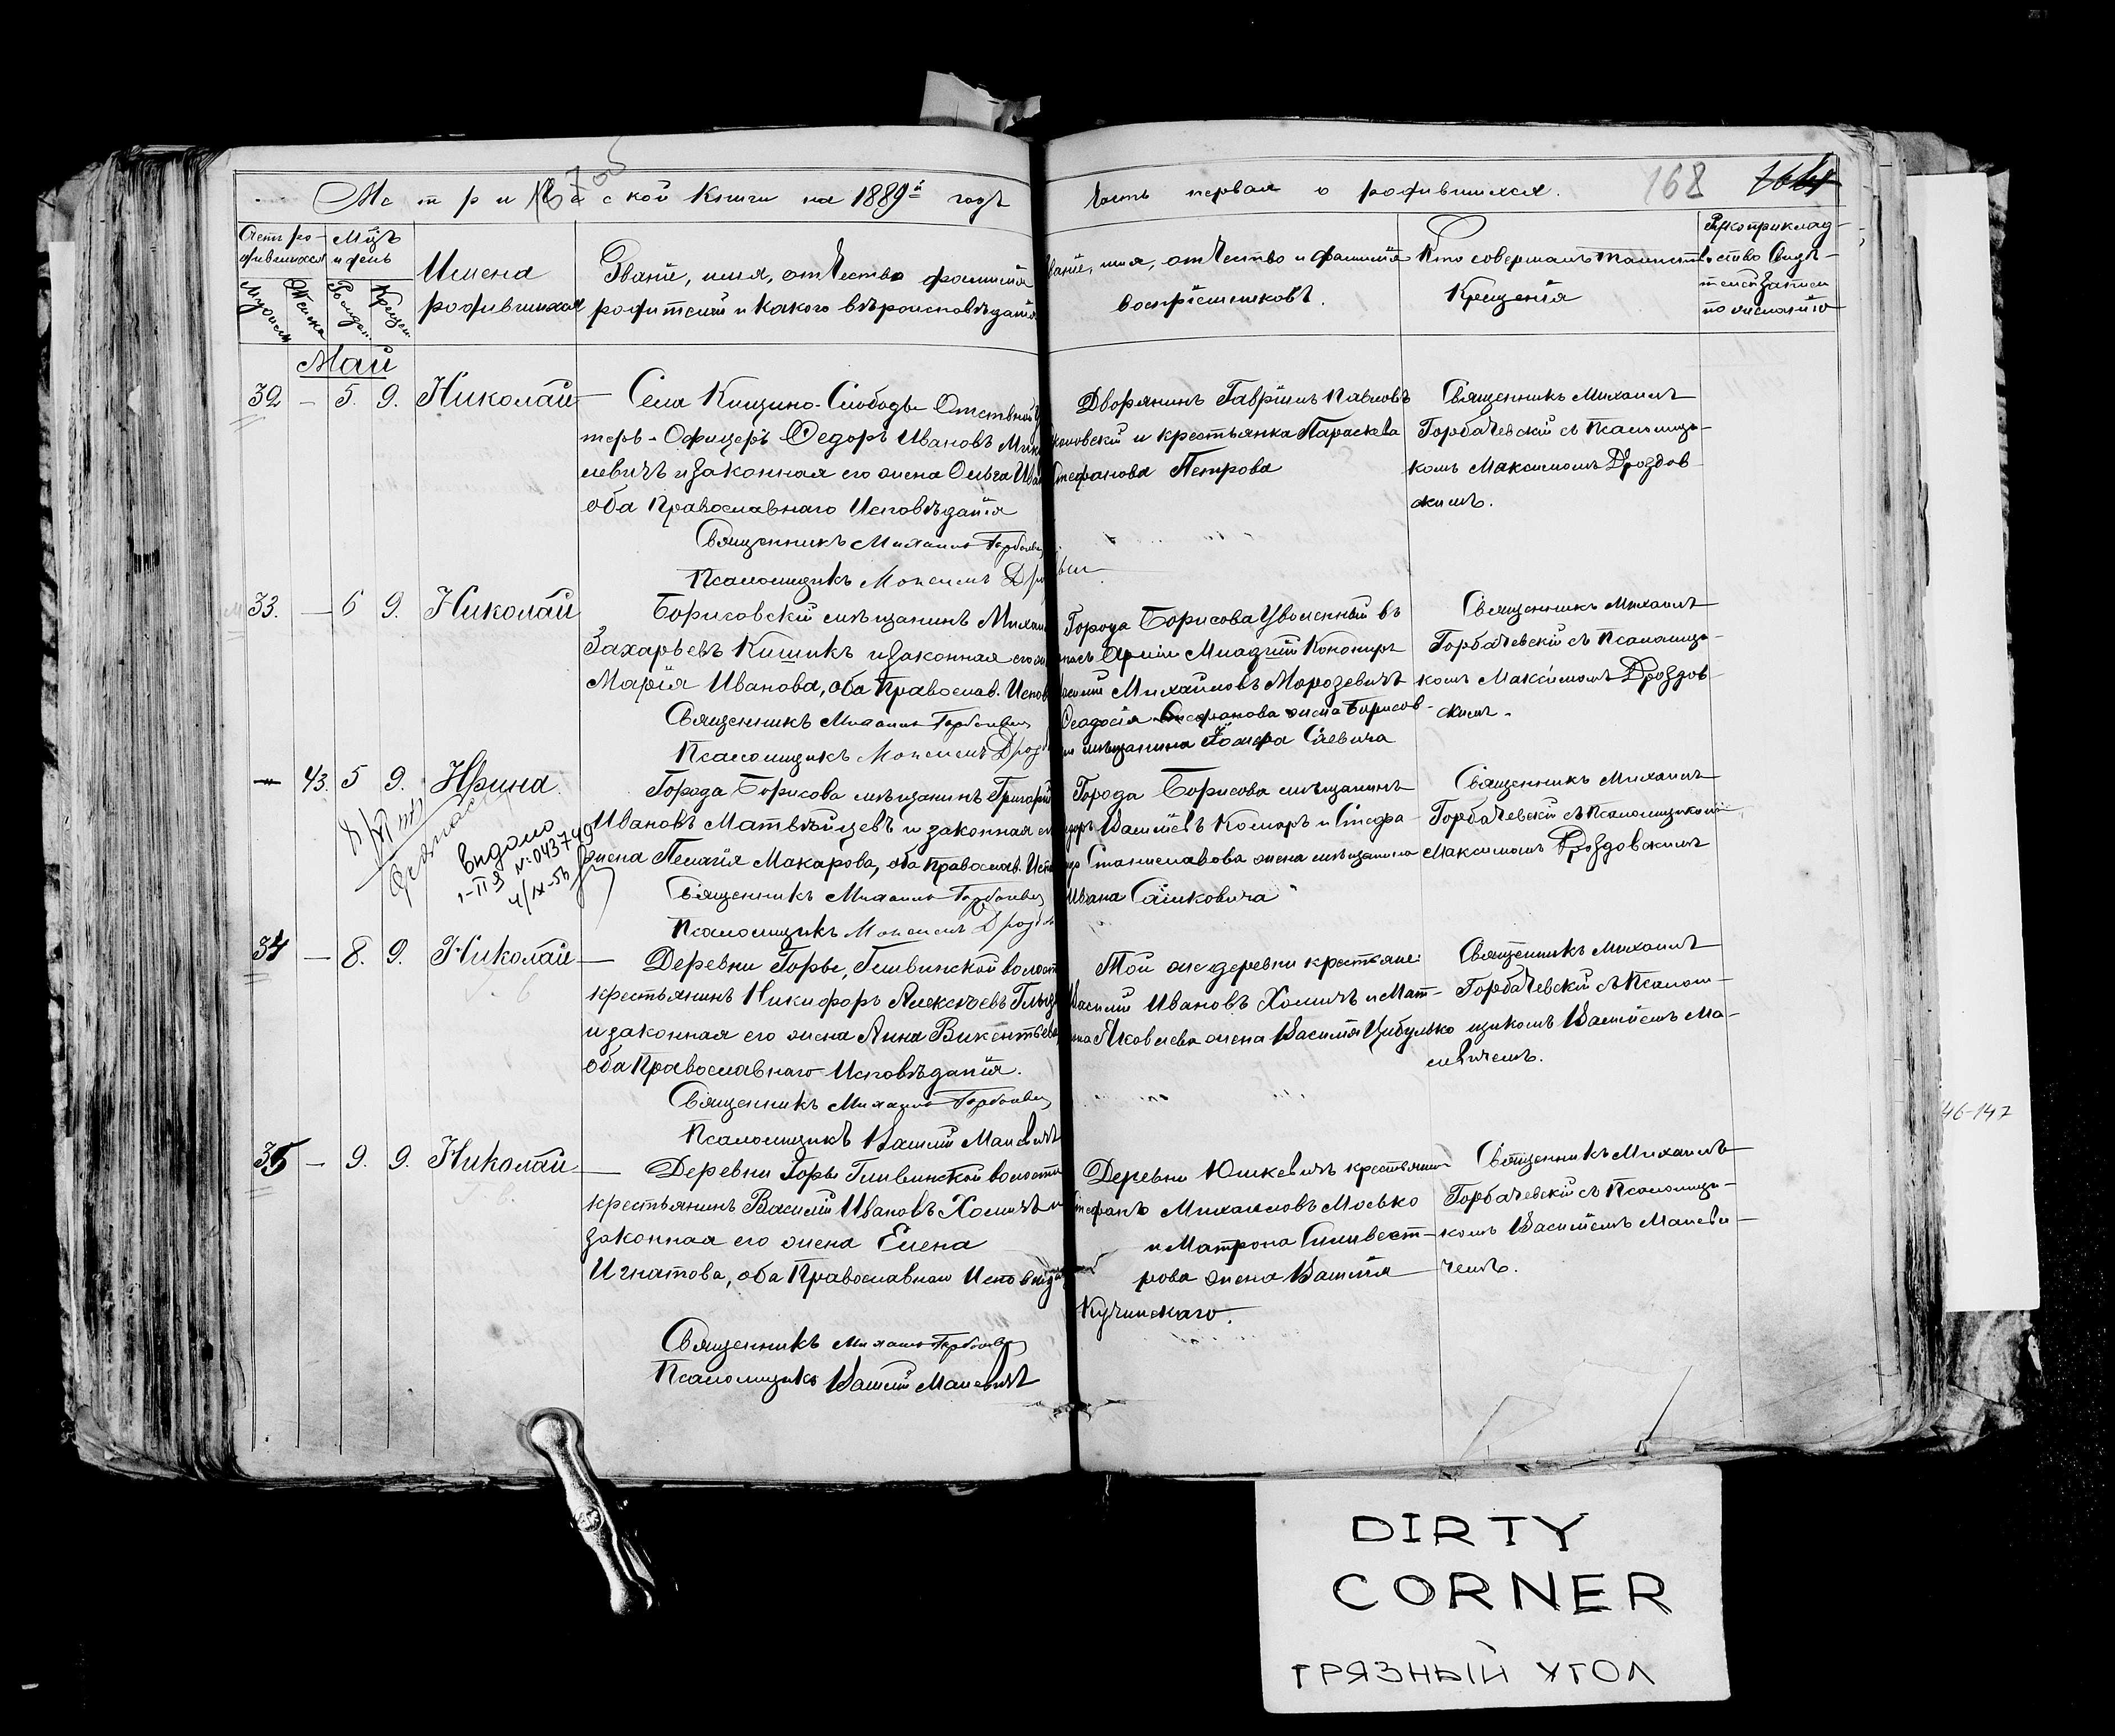 Метрической Книги на 1889й годъ
Часть первая о родившихся.
168
Счетъ ро-
дившихся
Мцъ
и день
Имена
родившихся
Званіе, имя, отчество фамилія
родителей и какого вѣроисповѣданія
Званіе, имя, отчество и фамилія
воспріемниковъ.
Кто совершалъ таинство
Крещенія
Рукоприклад-
ство Свидѣ-
телей записи
по желанію
Май
32 – 5. 9. Николай
Села Кищино-Слободы Отставной
теръ-Офицеръ Ѳедоръ Ивановъ
левичъ и законная его жена Ольга
оба Православнаго Исповѣданія
Священникъ Михаилъ
Псаломщикъ
Дворянинъ Гавріилъ Павловъ
и крестьянка Параскева
Стефанова Петрова
Священникъ Михаилъ
Горбачевскій съ Псаломщи-
комъ Максимомъ Дроздов-
скимъ.
33. – 6 9. Николай
Борисовскій мѣщанинъ Михаилъ
Захарьевъ Кишикъ и законная его
Марія Иванова, оба Православ.
Священникъ Михаилъ
Псаломщикъ
Города Борисова Уволенный въ
запасъ Арміи Младшій
Михайловъ Морозевичъ
Ѳеодосія Стефанова жена Борисов-
мѣщанина
Священникъ Михаилъ
Горбачевскій съ Псаломщи-
комъ Максимомъ Дроздов-
скимъ.
– 43. 5 9. Ирина.
Видано
I-ПЯ № 043749
4/IX-56
Города Борисова мѣщанинъ Григорій
Ивановъ Матвѣйцевъ и законная его
жена Пелагія Макарова, оба православ.
Священникъ Михаилъ
Псаломщикъ
Города Борисова мѣщанинъ
Васильевъ Комаръ и Стефа-
Станиславова жена мѣщанина
Ивана
Священникъ Михаилъ
Горбачевскій съ Псаломщикомъ
Максимомъ Дроздовскимъ
34 – 8. 9. Николай
Деревни Горы, Гливинской волости
крестьянинъ Никифоръ Алексѣевъ
и законная его жена Анна Викентьева
оба Православнаго Исповѣданія.
Священникъ Михаилъ
Псаломщикъ Василій Малевичъ
Той же деревни крестьяне:
Василій Ивановъ Хомичъ и Мат-
Яковлева жена Василія Цыбулько
Священникъ Михаилъ
Горбачевскій съ Псалом-
щикомъ Василіемъ Ма-
левичемъ.
35 – 9. 9. Николай
Деревни Горы Гливинской волости
крестьянинъ Василій Ивановъ Хомичъ и
законная его жена Елена
Игнатова, оба Православнаго
Священникъ Михаилъ
Псаломщикъ Василій Малевичъ
Деревни Юшкевичъ крестьянинъ
Стефанъ Михаиловъ Мосько
и Матрона Силивест-
рова жена Василія
Кучинскаго.
Священникъ Михаилъ
Горбачевскій съ Псаломщи-
комъ Василіемъ Малеви-
чемъ.
46-147
DIRTY
CORNER
ГРЯЗНЫЙ УГОЛ